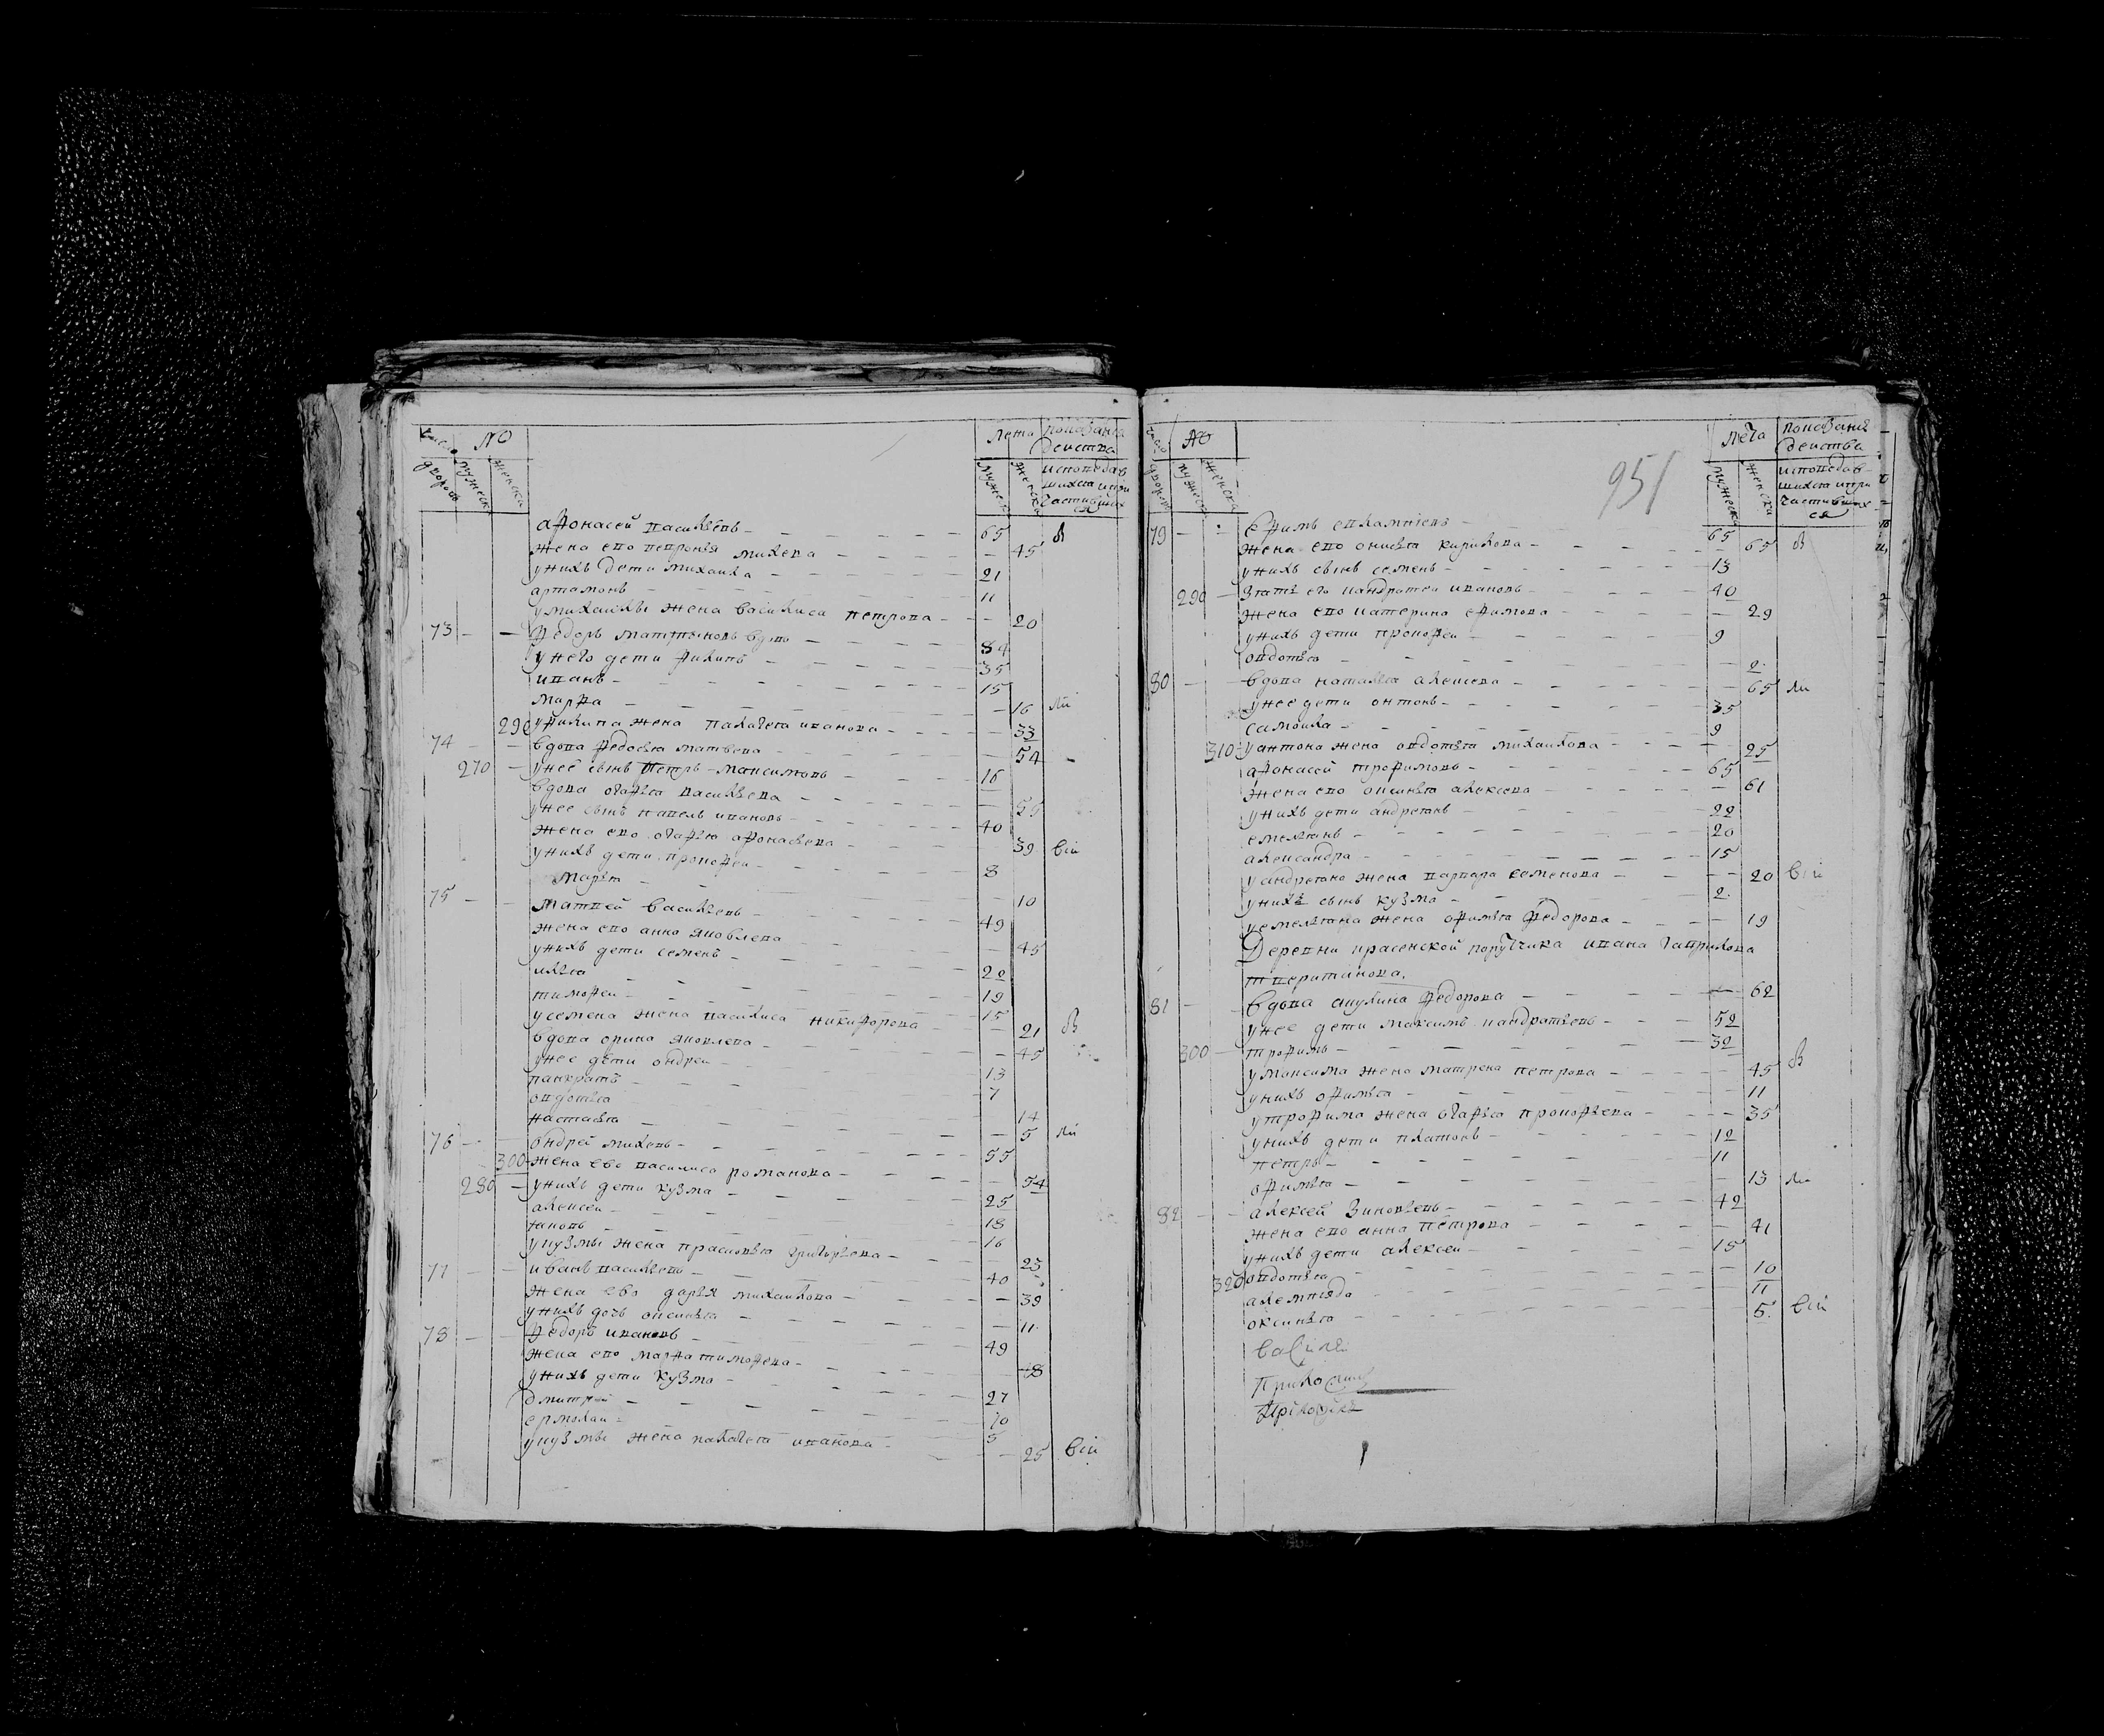 число дворовъ № мужеска женска лета мужеска женска показания действа исповедавшихся и причастившихся
афонасей васильевъ 65 в
жена ево петронья михева 45
у нихъ дети михаила 21
артамонъ 11
у михайлы жена василиса петрова 20
73 федоръ мартыновъ вдовъ 84
у него дети филипъ 35
иванъ 15
марфа 16 ли
290 у филипа жена палагея иванова 33
74 вдова федосья матвева 54
270 у нее сынъ петръ максимовъ 16
вдова агафья васильева 55
у нее сынъ павелъ ивановъ 40
жена ево агафья афонасьева 39 вси
у нихъ дети прокофеи 8
марья 10
75 матвей васильевъ 49
жена ево анна яковлева 45
у нихъ дети семенъ 22
илья 19
тимофеи 15
у семена жена василиса никифорова 21 в
вдова орина яковлева 45
у нее дети ондреи 13
панкратъ 7
овдотья 14
настасья 5 ли
76 ондрей михевъ 55
300 жена ево василиса романова 54
280 у нихъ дети кузма 25
алексеи 18
яковъ 16
у кузмы жена прасковья григорьева 23
77 иванъ васильевъ 40
жена ево дарья михаилова 39
у нихъ дочь оксинья 11
78 федоръ ивановъ 49
жена ево марфа тимофева 48
у нихъ дети кузма 27
дмитреи 10
ермолаи 5
у кузмы жена палагея иванова 25 вси
951
число дворовъ № мужеска женска лета мужеска женска показания действа исповедавшихся и причастившихся
79 ефимъ евлампиевъ 65
жена ево онисья кирилова 65 в
у нихъ сынъ семенъ 13
290 зять его кандратеи ивановъ 40
жена ево катерина ефимова 29
у нихъ дети прокофеи 9
овдотья 2
80 вдова наталья алексева 65 ли
у нее дети онтонъ 35
самоила 9
310 у антона жена овдотья михаилова 25
афонасей трофимовъ 65
жена ево оксинья алексева 61
у нихъ дети андреянъ 22
емельянъ 20
александра 15
у андреяна жена варвара семенова 20 вси
у нихъ сынъ кузма 2
у емельяна жена офимья федорова 19
Деревни красенской порутчика ивана гаврилова
тверитинова
81 вдова акулина федорова 62
у нее дети максимъ кандратьевъ 52
300 трофимъ 32
у максима жена матрена петрова 45 в
у нихъ офимья 11
у трофима жена агафья прокофьева 35
у нихъ дети платонъ 12
петръ 11
офимья 13 ли
82 алексей зиновьевъ 42
жена ево анна петрова 41
у нихъ дети алексеи 15
320 овдотья 10
алемпияда 11
оксинья 5 вси